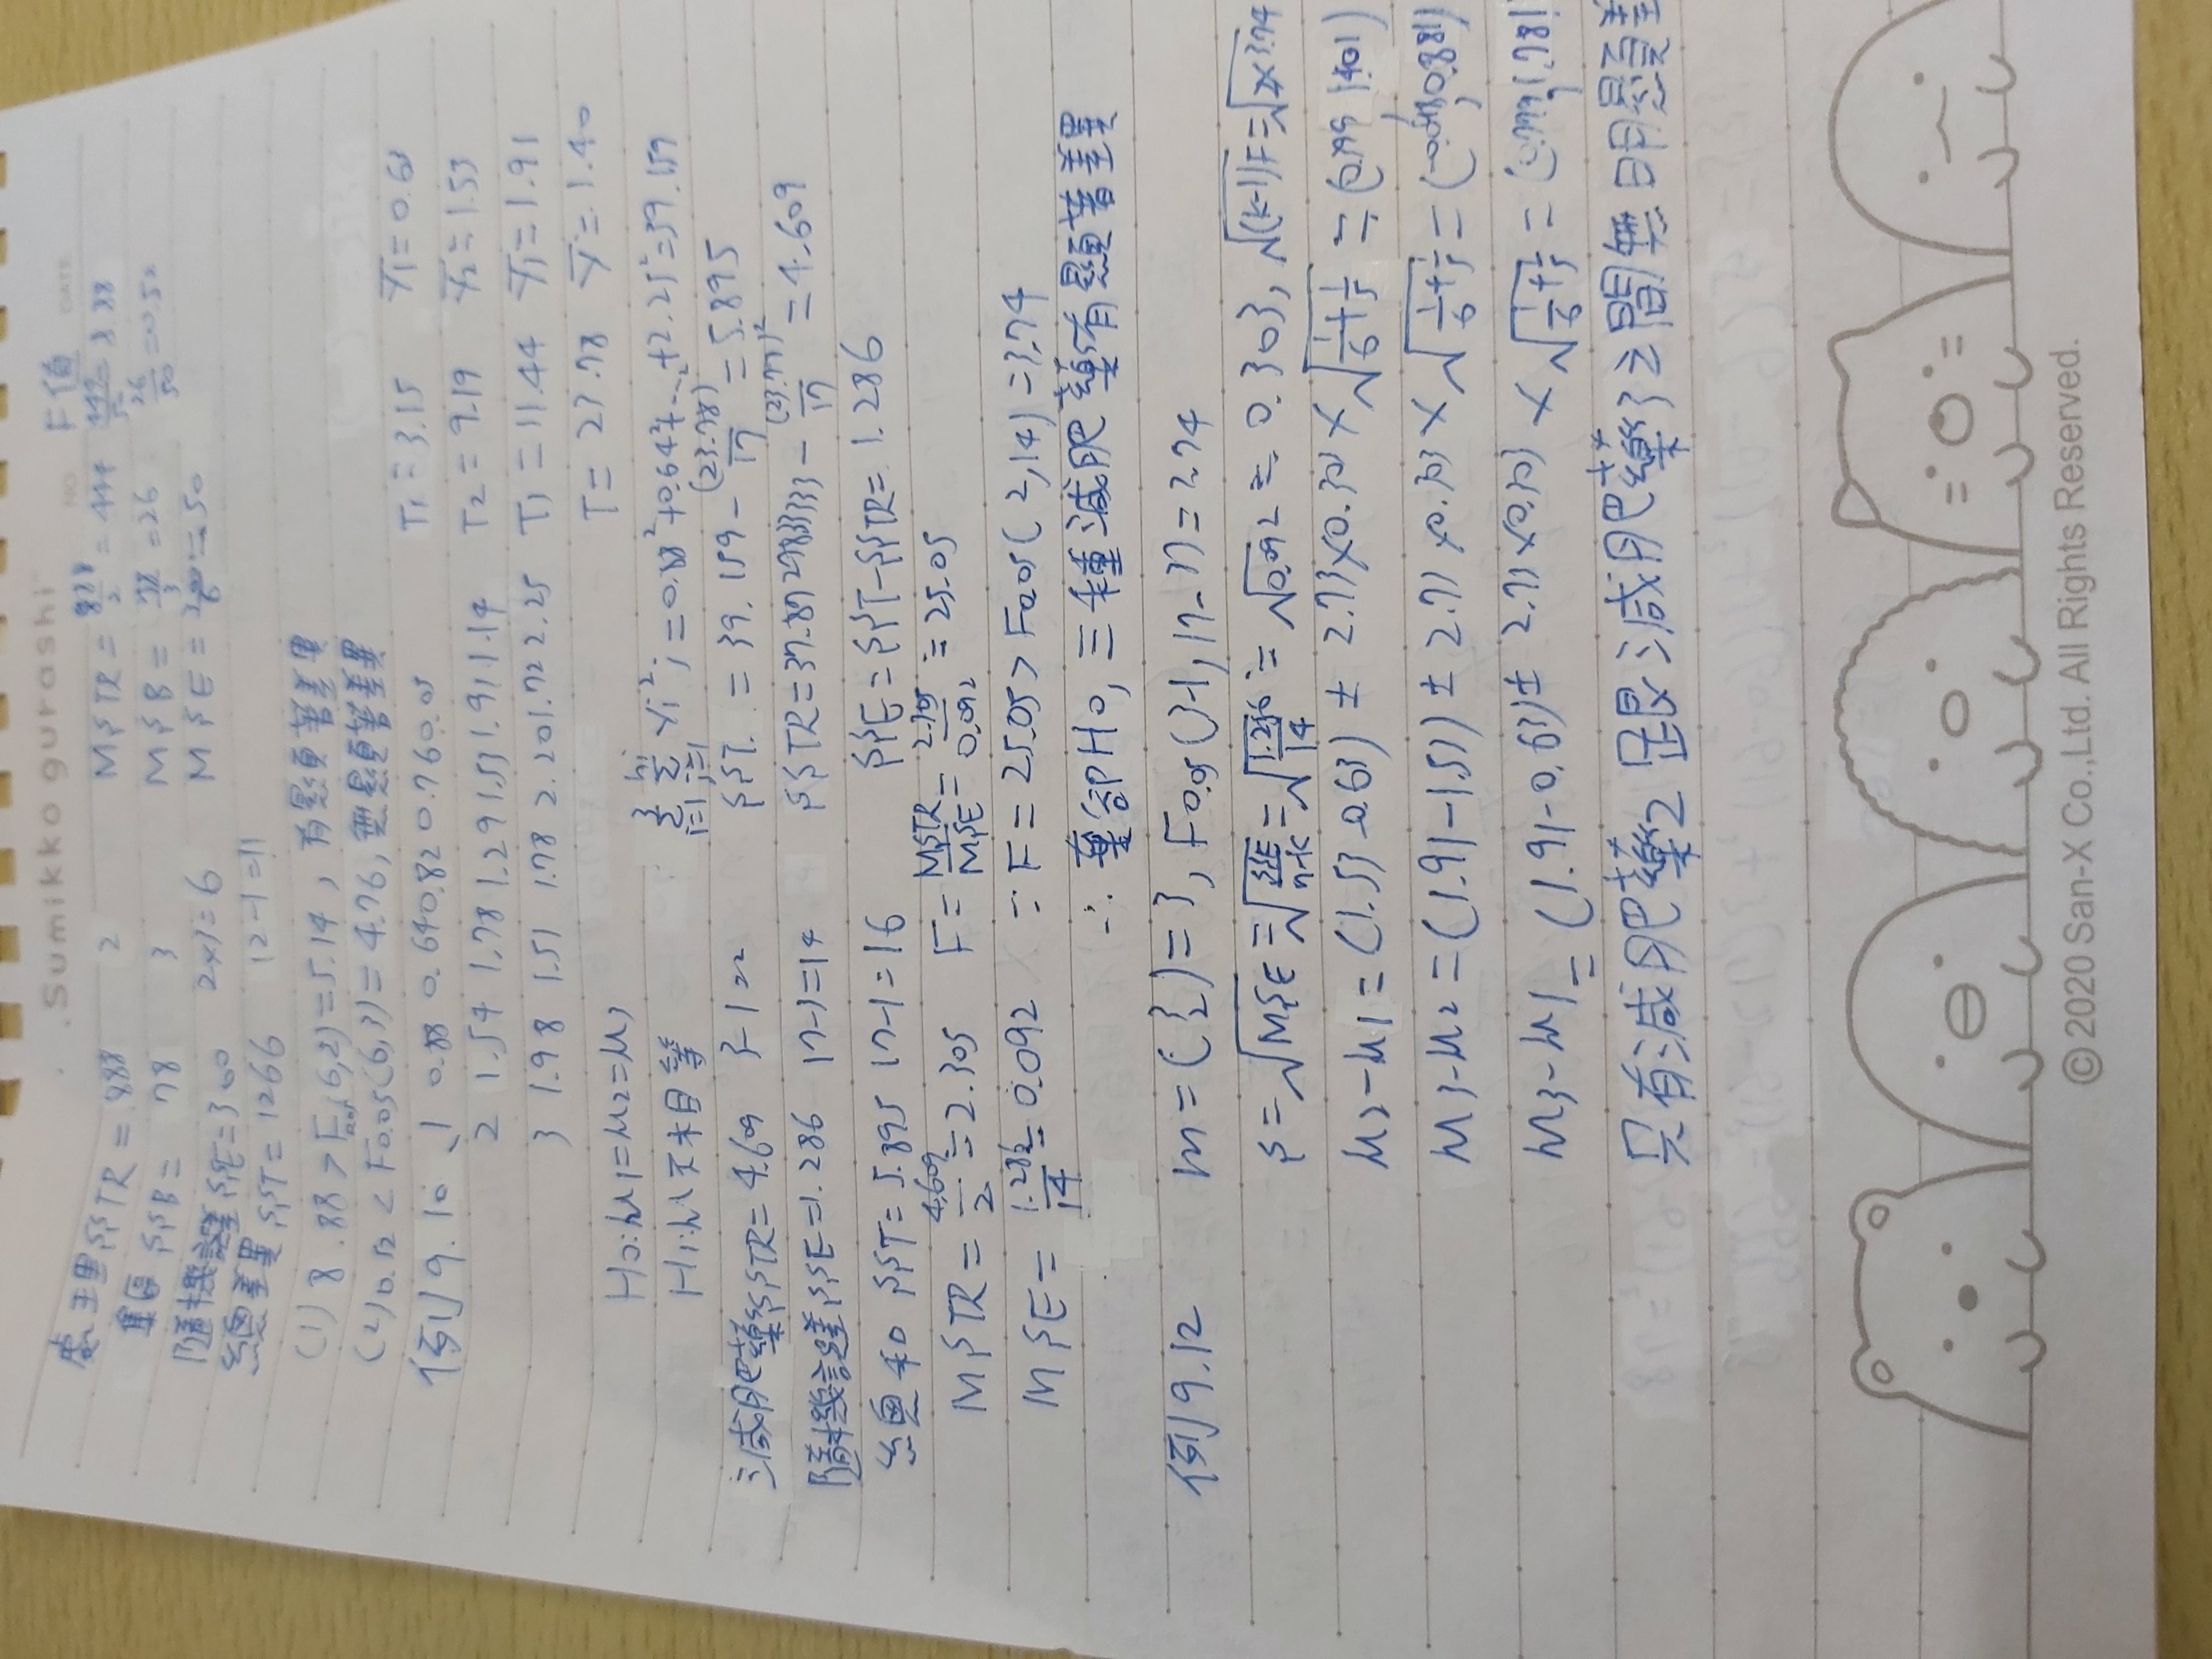 Sumikko gurashi
NO DATE F值
處理SSTR = 888 2 MSTR = 888/2 = 444 444/50 = 8.88
集區 SSB = 78 3 MSB = 78/3 = 26 26/50 = 0.52
隨機誤差 SSE = 300 2×3=6 MSE = 300/6 = 50
總差異 SST = 1266 12-1=11
(1) 8.88 > F0.05(6,2) = 5.14, 有顯著差異
(2) 0.52 < F0.05(6,3) = 4.76, 無顯著差異
例9.10 1 0.88 0.64 0.82 0.76 0.05 T1 = 3.15 Y̅1 = 0.63
2 1.54 1.78 1.29 1.53 1.91 1.14 T2 = 9.19 Y̅2 = 1.53
3 1.98 1.51 1.78 2.20 1.72 2.25 T3 = 11.44 Y̅3 = 1.91
T = 23.78 Y̅ = 1.40
H0: μ1=μ2=μ3
H1: μ不相等 3Σi=1 niΣj=1 Yi²j = 0.88²+0.64²+...+2.25² = 39.159
減肥藥SSTR = 4.609 3-1=2 SST = 39.159 - (23.78)²/17 = 5.895
隨機誤差SSE = 1.286 17-3=14 SSTR = 37.8727833333 - (23.77)²/17 = 4.609
總和 SST = 5.895 17-1=16 SSE = SST-SSTR = 1.286
MSTR = 4.609/2 = 2.305 F = MSTR/MSE = 2.305/0.092 = 25.05
MSE = 1.286/14 = 0.092 ∵ F = 25.05 > F0.05(2,14) = 3.74
∴ 棄卻H0, 三種減肥藥有顯著差異
例9.12 m = (3 2) = 3, F0.05(3-1, 17-3) = 3.74
S = √MSE = √SSE/n-k = √1.286/14 = √0.092 = 0.303, √(k-1)F = √2×3.74
μ2-μ1 = (1.53-0.63) ± 2.73×0.303×√1/6+1/5 = (0.399, 1.401)
μ3-μ2 = (1.91-1.53) ± 2.73×0.303×√1/6+1/5 = ( 0.881)
μ3-μ1 = (1.91-0.63) ± 2.73×0.303×√1/6+1/5 = (0.779, 1.781
只有減肥藥2跟減肥藥3之間無明顯差
© 2020 San-X Co.,Ltd. All Rights Reserved.